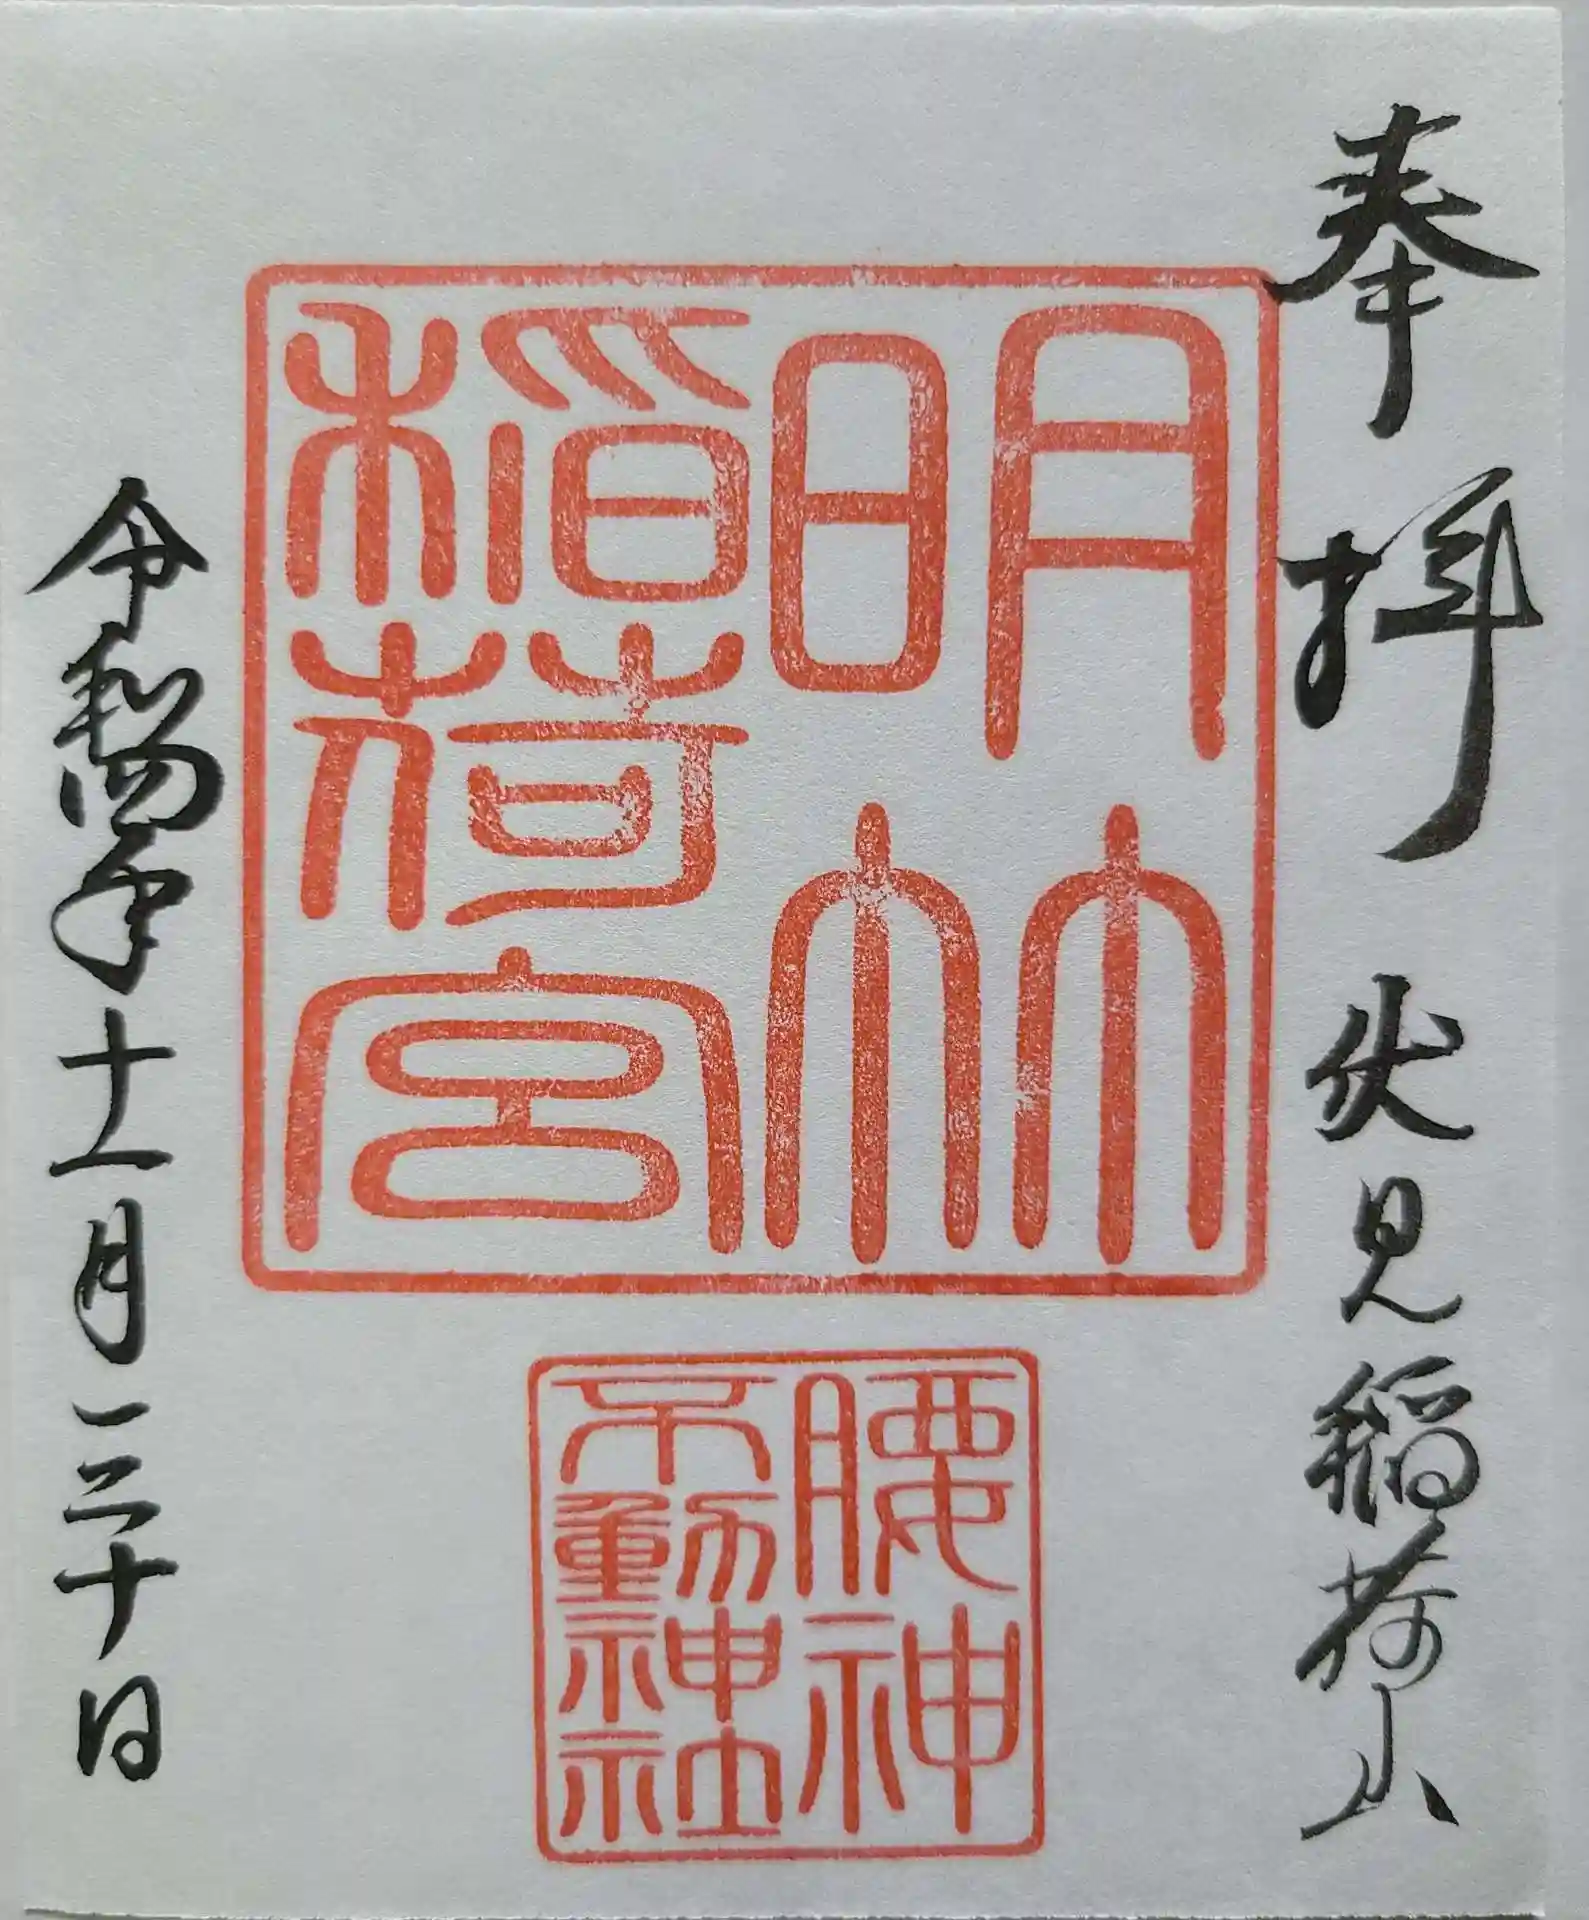 奉拝 伏見稲荷山
明竹
稲荷宮
腰神
不動神社
令和四年十一月三十日